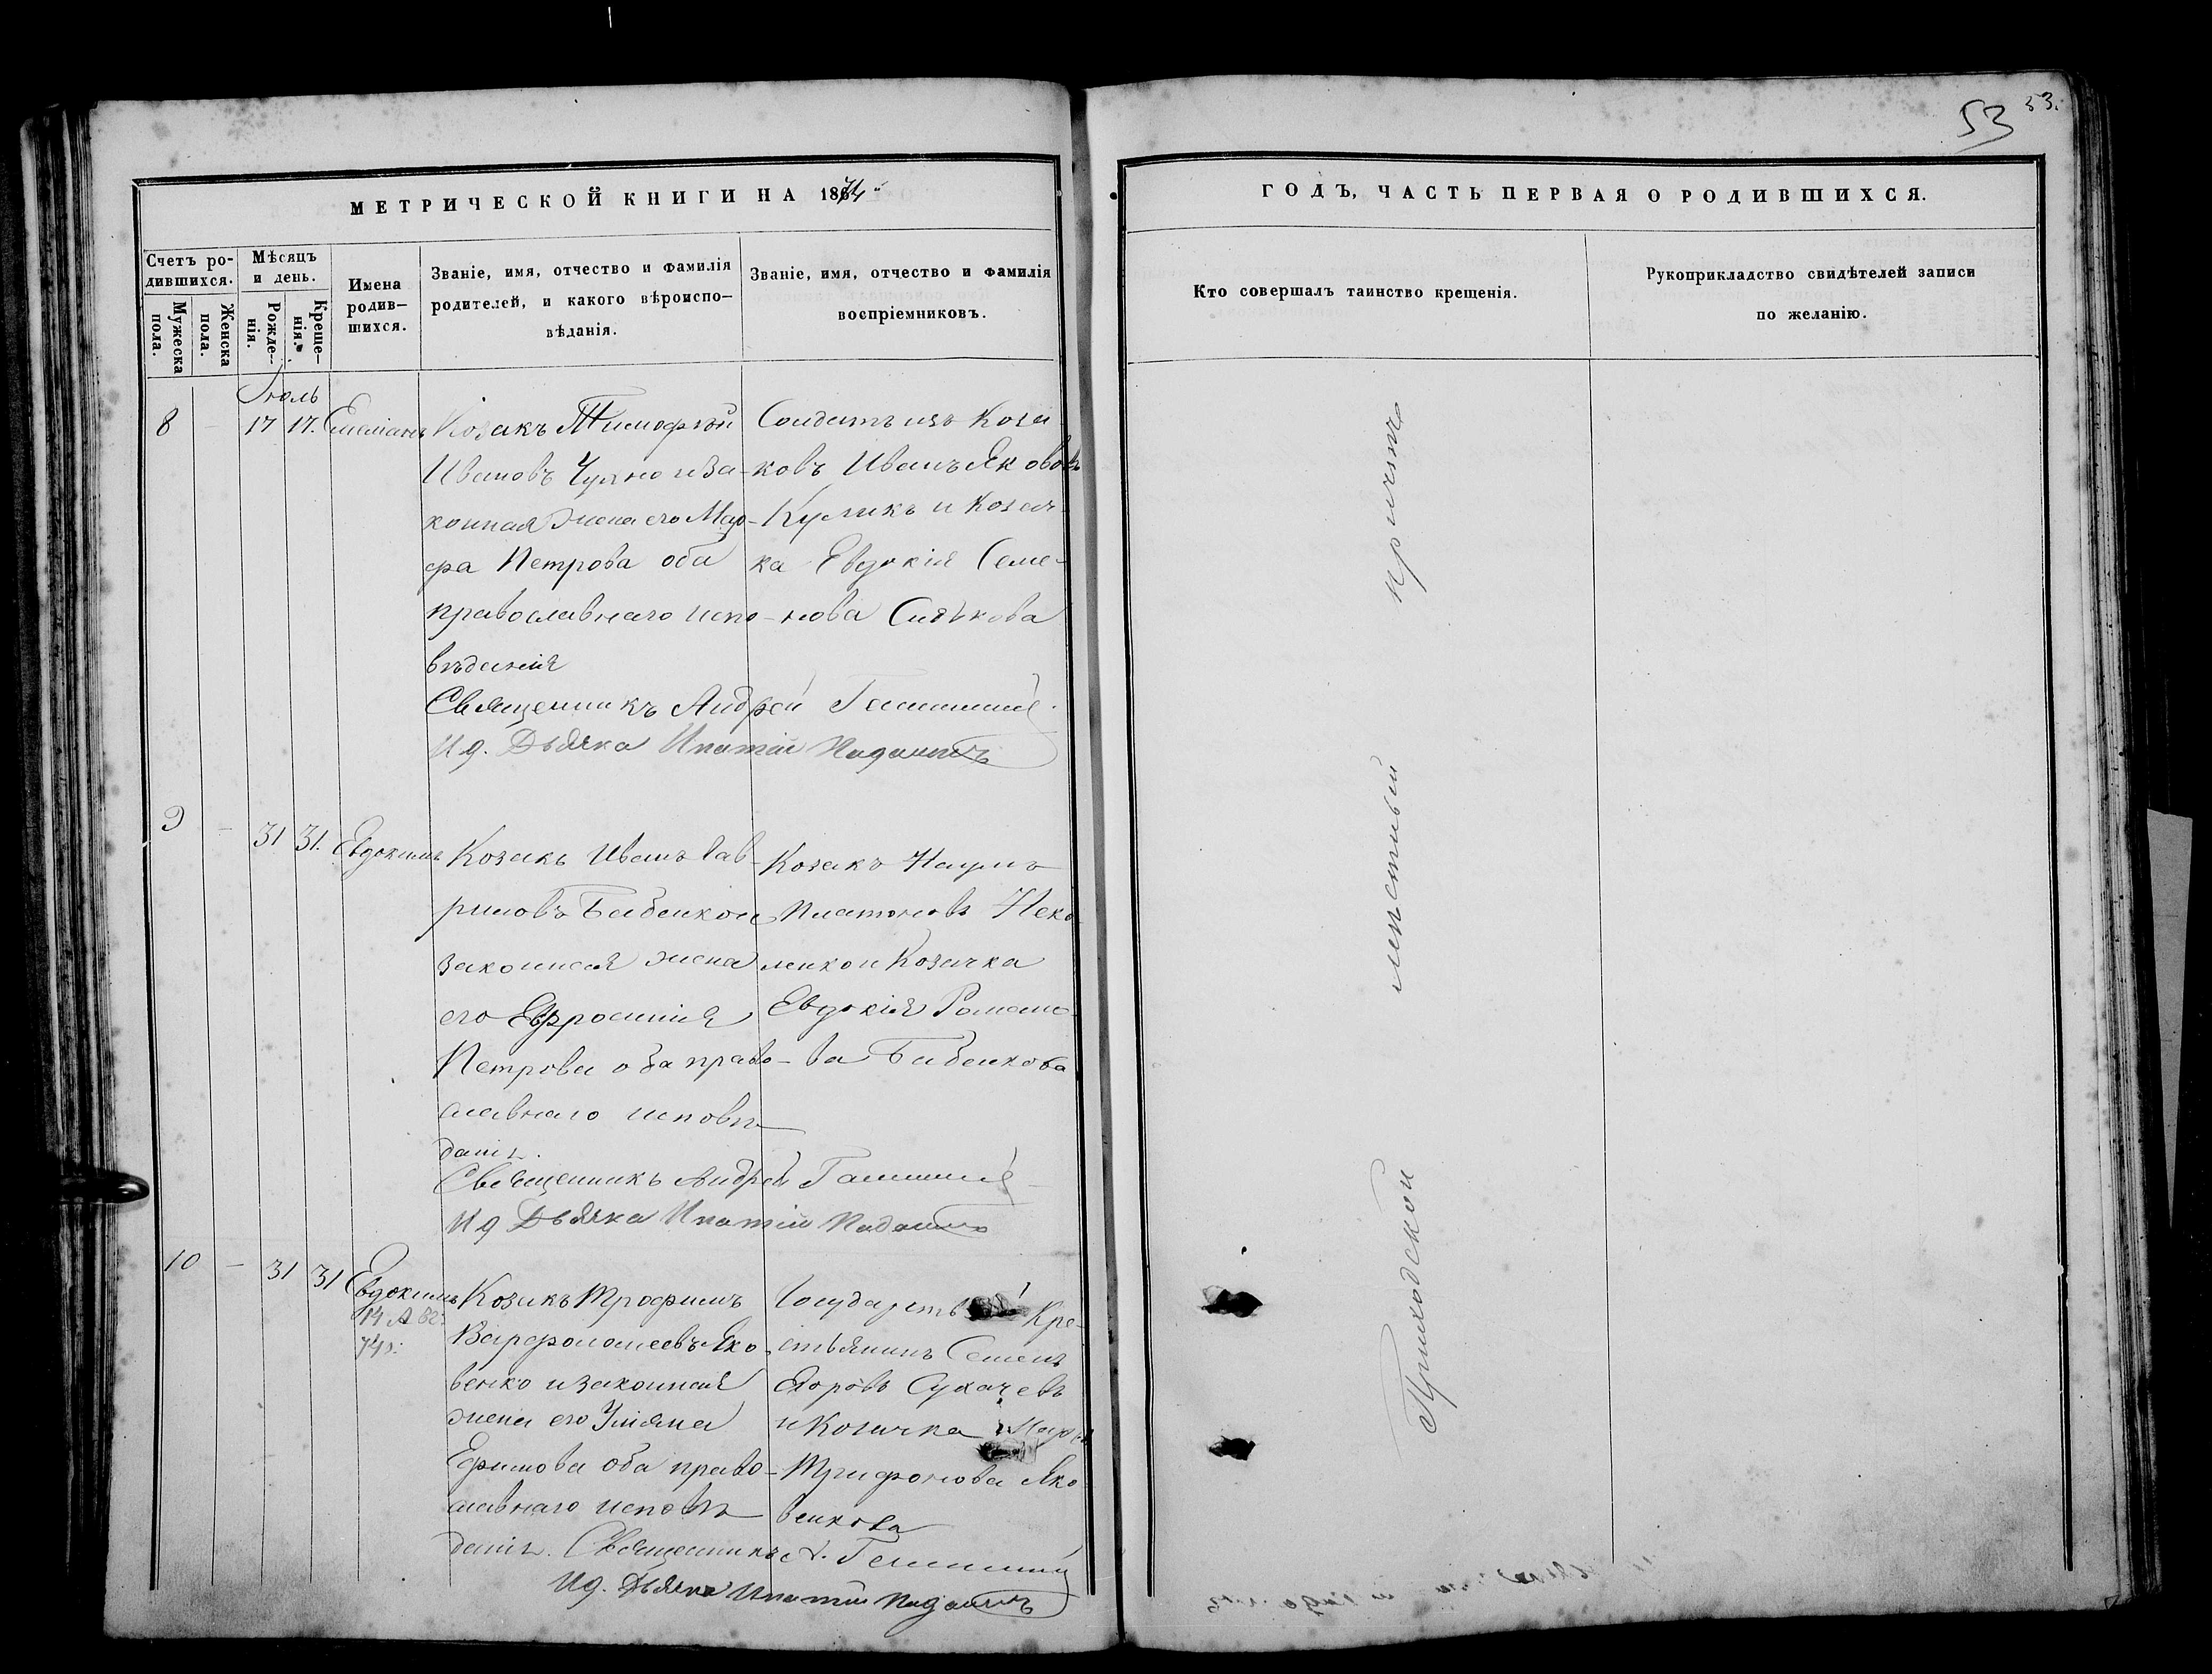 53 53.
МЕТРИЧЕСКОЙ КНИГИ НА 1874
ГОДЪ, ЧАСТЬ ПЕРВАЯ О РОДИВШИХСЯ.
Счетъ ро-
дившихся.
Мужеска
пола.
Женска
пола.
Мѣсяцъ
и день.
Рожде-
нія.
Креще-
нія.
Имена
родив-
шихся.
Званіе, имя, отчество и фамилія
родителей, и какого вѣроиспо-
вѣданія.
Званіе, имя, отчество и фамилія
воспріемниковъ.
Кто совершалъ таинство крещенія.
Рукоприкладство свидѣтелей записи
по желанію.
Іюль
8 - 17 17. Емеліанъ
Козакъ Тимофѣй
Ивановъ и за-
конная жена его Мар-
фа Петрова оба
православнаго испо-
вѣданія
Солдатъ изъ Коза
ковъ Иванъ Якововъ
Куликъ и Козач-
ка Евдокія Семе-
нова
Священникъ Андрей
И д. Дьячка Ипатій
9 - 31 31. Евдокимъ
Козакъ Иванъ Гав-
риловъ Бабенко и
законная жена
его Евфросинія
Петрова оба право-
славнаго исповѣ-
данія.
Козакъ Наумъ
Платоновъ
и Козачка
Евдокія Романо-
ва Бабенкова
Священникъ Андрей
И д Дьячка Ипатій
10 - 31 31 Евдокимъ
14 Авг:
74 г.
Козакъ Трофимъ
Варфоломеевъ Яко
венко и законная
жена его Уліяна
Ефимова оба право-
славнаго исповѣ
данія.
Государств Кре-
стьянинъ Семенъ
Егоровъ Сухачевъ
и Козачка
Трифонова Яко
венкова
Священникъ А.
И д. Дьячка Ипатій
Приходской мѣстный причтъ